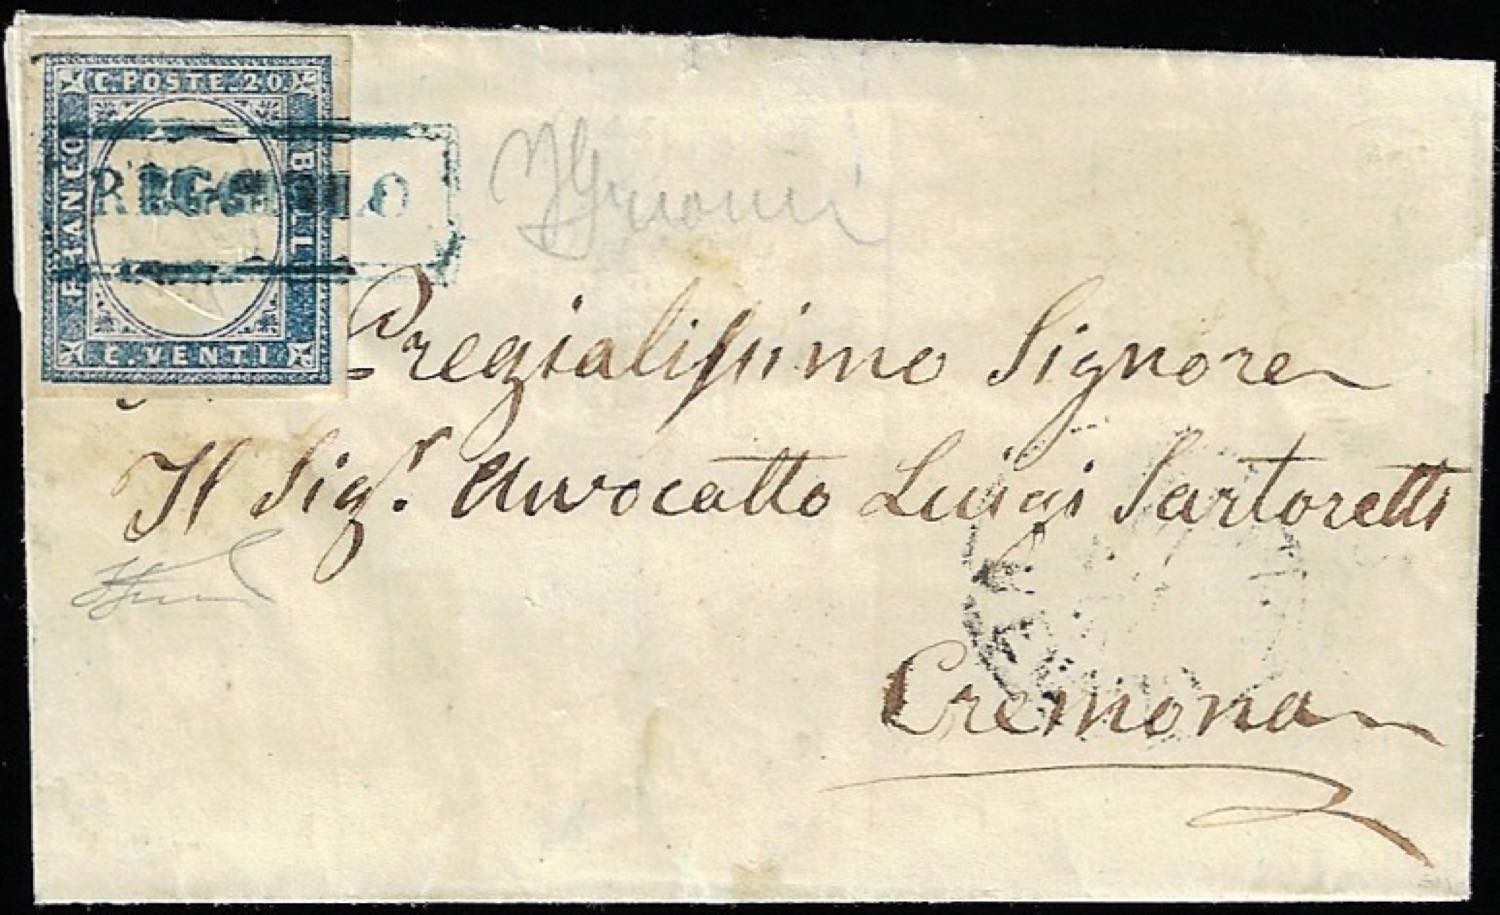 C. POSTE. 20
FRANCO
BOLLO
C. VENTI
Pregialissimo Signore
Il Sigr. Avvocatto Luigi Sartoretti
Cremona